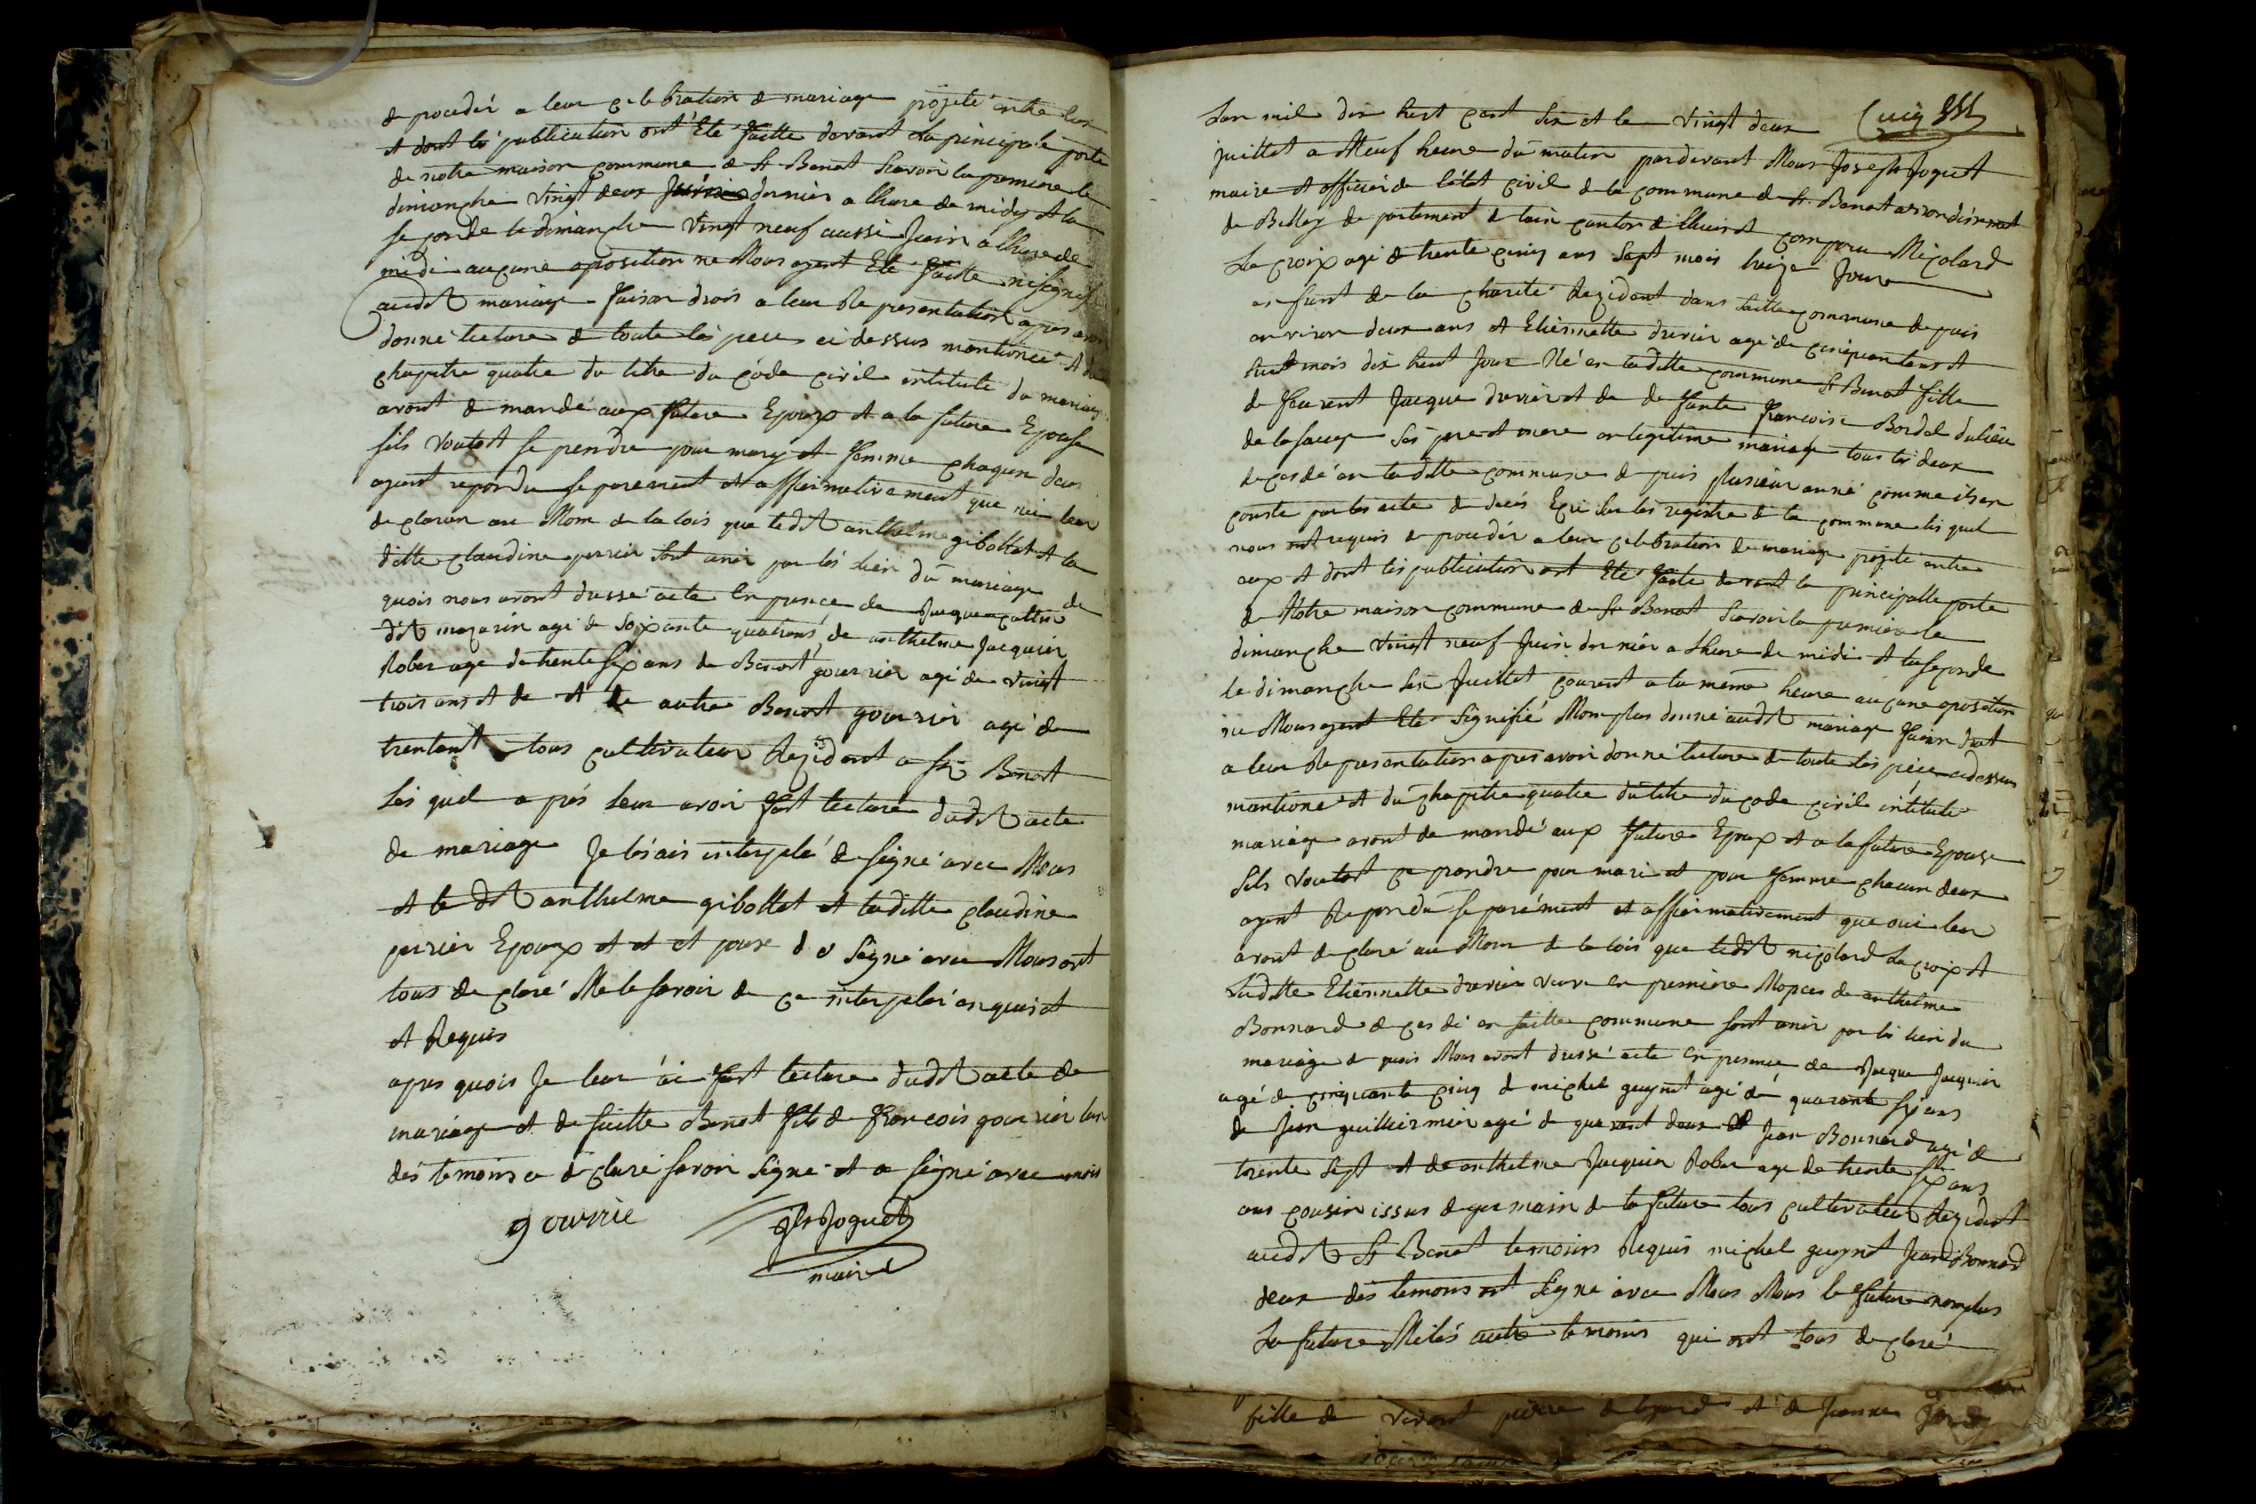 de procedér a leur celebration de mariage projeté entre eux
et dont les publication ont Eté faitte devant la principale porte
de notre maison commune de St Benoit Scavoir la premiere le
dimanche vingt deux dernier a lheure de midy et la
seconde le dimanche vingt neuf aussi Juin a lheure de
midi aucune oposition ne Nous ayant Eté faitte ni signifié
audit mariage faisan drois a leur Representation apres avoir
donné lecture de toute les piece ci dessus mantionée et du
chapitre quatre du titre du code civil intitulé du mariage
avont demandé aux future Epoux et a la future Epouse
sils veulent se prendre pour mary et femme chaqun deux
ayant repondu separement et affirmativement que oui leur
declaron au Nom de la lois que ledit anthelme gibottet et la
ditte claudine perrier sont unir par lés lien du mariage de
quois nous avont dressé acte En presence de Jacque
dit mazarin agé de soixante quatrans de anthelme Jacquier
Rober age de trente six ans de Benoit gourrier agé de vingt
trois ans et de et de autre Benoit gourrier agé de
trentent tous cultivateur Rezident a St Benoit
Les quel aprés leur avoir fait lecture dudit acte
de mariage Je lés ais interpelé de signé avec Nous
et le dit anthelme gibottet et laditte claudine
perrier Epoux et et et pouse de signé avec Nous ont
tous declaré Ne le savoir de ce interpelé enquis et
et Requis
apres quois Je leur ai fait lecture dudit acte de
mariage et de suitte Benoit fils de francois gourrier lun
dés temoins a declaré savoir signé et a signé avec nous
gourrié Jh Joguet
maire
Lan mil dix huit cent six et le vingt deux
juillet a Neuf heure du matin pardevant Nous Joseph Joguet
maire et officier de létat civil de la commune de St Benoit arrondisment
de Belley departement de lain canton de lhuis et comparu Nicolard
La croix agé de trente cinq ans sept mois treize Jour
enfent de la charité Rezident dans laditte commune depuis
environ deux ans et Etiennette durier agé de cinquantans et
huit mois dix huit Jour Né en laditte commune St Benoit fille
de feu Jacque durier et de defunte francoise Bordel du lieu
de lasauge Ses pere et mere en legitime mariage tous lés deux
decedé en laditte commune depuis plusieur anné comme il en
conste par les acte de decés Ecri sur lés registre de la commune lés quel
nous ont requis de procedér a leur celebration de mariage projeté entre
eux et dont lés publication ont Eté faite devant la principalle porte
de Notre maison commune de St Benoit Scavoir la premiere le
dimanche vingt neuf Juin dernier a lheure de midi et la seconde
le dimanche six Juillet courant a la meme heure aucune oposition
ne Nous ayent Eté signifié Nomplus donné audit mariage faisan droit
a leur Representation apres avoir donné lecture de toute lés piéce cidessus
mantioné et du chapitre quatre du titre du code civil intitulé
mariage avont demandé aux future Epoux et a la future Epouse
sils veulent ce prendre pour mari et pour femme chacun deux
ayant Repondu separément et affirmativement que oui leur
avont declaré au Nom de la lois que ledit nicolard La croix et
Laditte Etiennette durier veuve en premiere Nopces de anthelme
Bonnard decedé en laditte commune sont unir par lés lien du
mariage de quois Nous avont dressé acte En presence de Jacque Jacquier
agé de cinquante cinq de michel guynet agé de quarante six ans
de Jean guilliermier agé de quarant deux et Jean Bonnard agé de
trente sept et de anthelme Jacquier Rober agé de trente six ans
ans cousin issus de germain de la future tous cultivateur Rezident
audit St Benoit temoins Requis michel guynet Jean Bonnard
deux dés temoins ont signé avec Nous Nous le future nomplus
La future Ni lés autre temoins qui ont tous declaré
fille de vivant pierre et de Jeanne